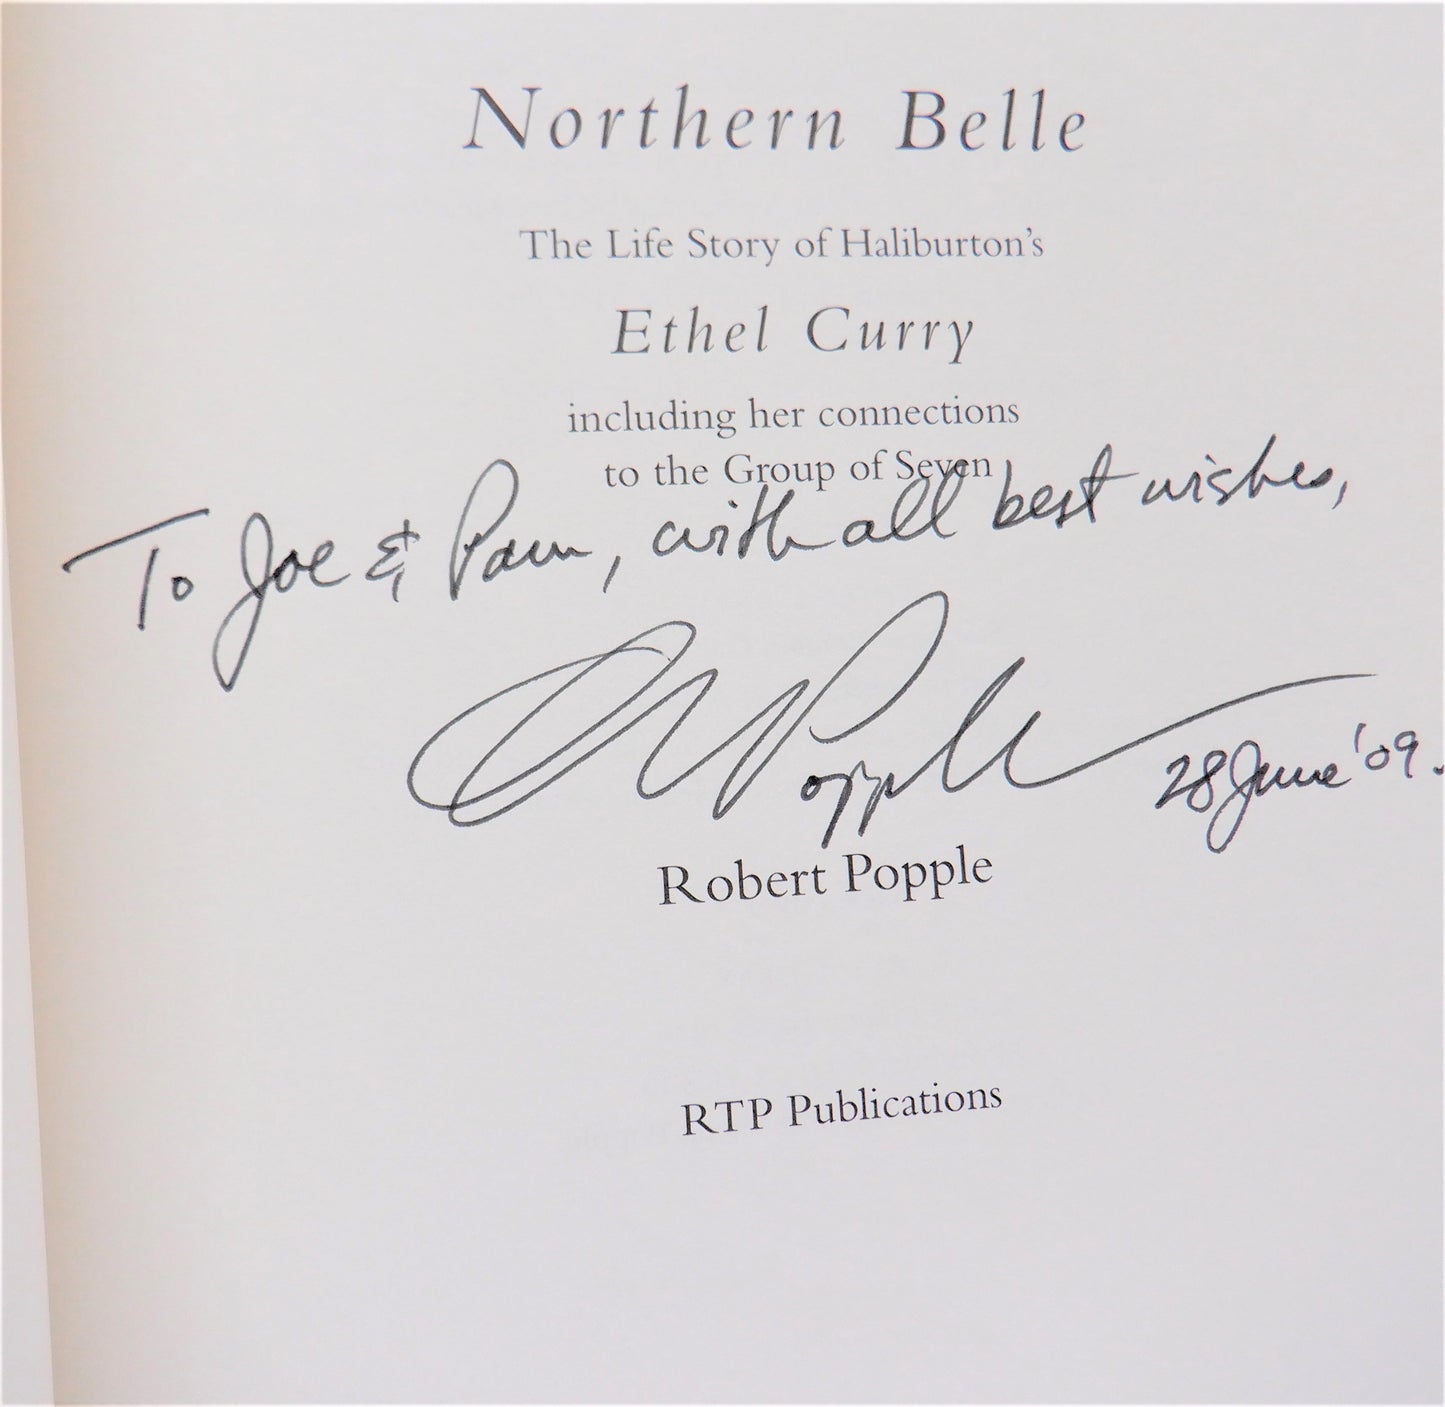 Northern Belle
The Life Story of Haliburton's
Ethel Curry
including her connections
to the Group of Seven
To Joe & Pam, with all best wishes,
Popple
28 June '09.
Robert Popple
RTP Publications